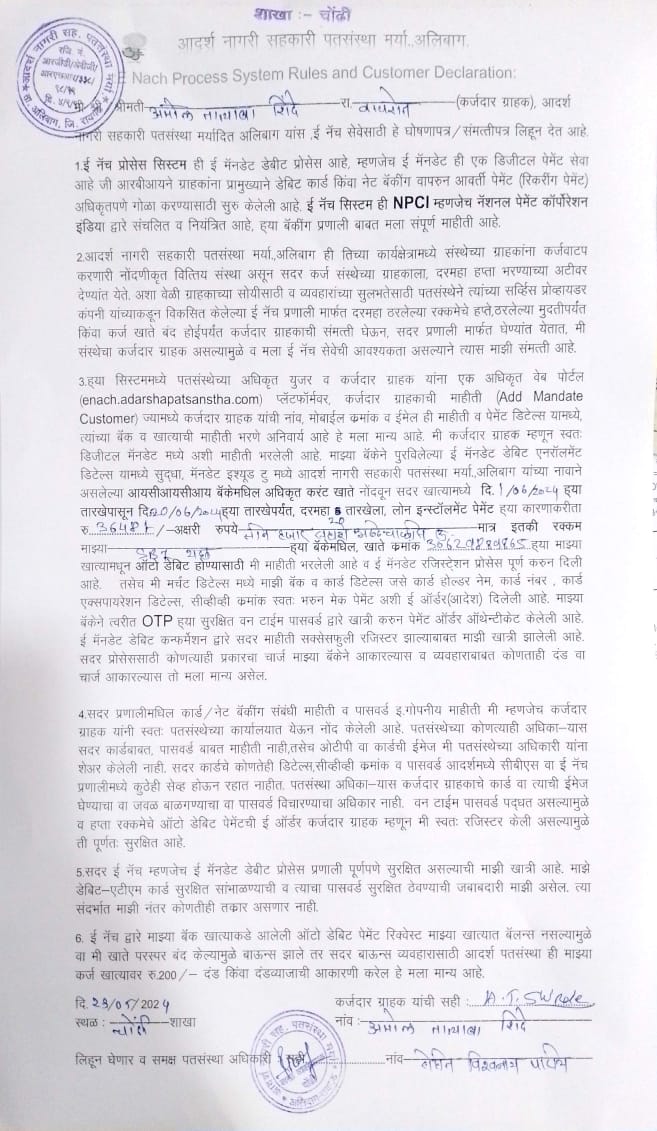 शाखा :- चोंढी
आदर्श नागरी सहकारी पतसंस्था मर्या..अलिबाग.
E Nach Process System Rules and Customer Declaration:
मी श्री/श्रीमती अमोल तात्याबा शिंदे रा. वायशेत (कर्जदार ग्राहक), आदर्श
नागरी सहकारी पतसंस्था मर्यादित अलिबाग यांस ,ई नॅच सेवेसाठी हे घोषणापत्र/संमत्तीपत्र लिहून देत आहे.
1.ई नॅच प्रोसेस सिस्टिम ही ई मॅनडेट डेबीट प्रोसेस आहे, म्हणजेच ई मॅनडेट ही एक डिजीटल पेमेंट सेवा
आहे जी आरबीआयने ग्राहकांना प्रामुख्याने डेबिट कार्ड किंवा नेट बॅकींग वापरुन आवर्ती पेमेंट (रिकरींग पेमेंट)
अधिकृतपणे गोळा करण्यासाठी सुरु केलेली आहे. ई नॅच सिस्टिम ही NPCI म्हणजेच नॅशनल पेमेंट कॉर्पोरेशन
इंडिया द्वारे संचलित व नियंत्रित आहे, ह्या बॅकींग प्रणाली बाबत मला संपूर्ण माहीती आहे.
2.आदर्श नागरी सहकारी पतसंस्था मर्या.,अलिबाग ही तिच्या कार्यक्षेत्रामध्ये संस्थेच्या ग्राहकांना कर्जवाटप
करणारी नोंदणीकृत वित्तिय संस्था असून सदर कर्ज संस्थेच्या ग्राहकाला, दरमहा हप्ता भरण्याच्या अटीवर
देण्यांत येते. अशा वेळी ग्राहकाच्या सोयीसाठी व व्यवहारांच्या सुलभतेसाठी पतसंस्थेने त्यांच्या सर्व्हिस प्रोव्हायडर
कंपनी यांच्याकडून विकसित केलेल्या ई नॅच प्रणाली मार्फत दरमहा ठरलेल्या रक्कमेचे हप्ते,ठरलेल्या मुदतीपर्यंत
किंवा कर्ज खाते बंद होईपर्यंत कर्जदार ग्राहकाची संमत्ती घेऊन, सदर प्रणाली मार्फत घेण्यांत येतात, मी
संस्थेचा कर्जदार ग्राहक असल्यामुळे व मला ई नॅच सेवेची आवश्यकता असल्याने त्यास माझी संमत्ती आहे.
3.हया सिस्टिममध्ये पतसंस्थेच्या अधिकृत युजर व कर्जदार ग्राहक यांना एक अधिकृत वेब पोर्टल
(enach.adarshapatsanstha.com) प्लॅटफॉर्मवर, कर्जदार ग्राहकाची माहीती (Add Mandate
Customer) ज्यामध्ये कर्जदार ग्राहक यांची नांव, मोबाईल क्रमांक व ईमेल ही माहीती व पेमेंट डिटेल्स यामध्ये,
त्यांच्या बॅंक व खात्याची माहीती भरणे अनिवार्य आहे हे मला मान्य आहे. मी कर्जदार ग्राहक म्हणून स्वतः
डिजीटल मॅनडेट मध्ये अशी माहीती भरलेली आहे. माझ्या बॅकेने पुरविलेल्या ई मॅनडेट डेबिट एनरॉलमेंट
डिटेल्स यामध्ये सुद्धा, मॅनडेट इश्यूड टु मध्ये आदर्श नागरी सहकारी पतसंस्था मर्या.,अलिबाग यांच्या नावाने
असलेल्या आयसीआयसीआय बॅकेमधिल अधिकृत करंट खाते नोंदवून सदर खात्यामध्ये दि. 1/06/2024 ह्या
तारखेपासून दि. 20/06/ ह्या तारखेपर्यंत, दरमहा 20 तारखेला, लोन इन्स्टॉलमेंट पेमेंट ह्या कारणाकरीता
रु. /-अक्षरी रुपये मात्र इतकी रक्कम
माझ्या SBI ह्या बॅकेमधिल, खाते क्रमांक 30629889865 ह्या माझ्या
खात्यामधून ऑटो डेबिट होण्यासाठी मी माहीती भरलेली आहे व ई मॅनडेट रजिस्ट्रेशन प्रोसेस पूर्ण करुन दिली
आहे. तसेच मी मर्चंट डिटेल्स मध्ये माझी बॅक व कार्ड डिटेल्स जसे कार्ड होल्डर नेम, कार्ड नंबर , कार्ड
एक्सपायरेशन डिटेल्स, सीव्हीव्ही क्रमांक स्वतः भरुन मेक पेमेंट अशी ई ऑर्डर(आदेश) दिलेली आहे. माझ्या
बॅकेने त्वरीत OTP ह्या सुरक्षित वन टाईम पासवर्ड द्वारे खात्री करुन पेमेंट ऑर्डर ऑथेन्टीकेट केलेली आहे.
ई मॅनडेट डेबिट कन्फर्मेशन द्वारे सदर माहीती सक्सेसफुली रजिस्टर झाल्याबाबत माझी खात्री झालेली आहे.
सदर प्रोसेससाठी कोणत्याही प्रकारचा चार्ज माझ्या बॅकेने आकारल्यास व व्यवहाराबाबत कोणताही दंड वा
चार्ज आकारल्यास तो मला मान्य असेल.
4.सदर प्रणालीमधिल कार्ड/नेट बॅकींग संबंधी माहीती व पासवर्ड इ.गोपनीय माहीती मी म्हणजेच कर्जदार
ग्राहक यांनी स्वतः पतसंस्थेच्या कार्यालयात येऊन नोंद केलेली आहे. पतसंस्थेच्या कोणत्याही अधिका-यास
सदर कार्डबाबत, पासवर्ड बाबत माहीती नाही,तसेच ओटीपी वा कार्डची ईमेज मी पतसंस्थेच्या अधिकारी यांना
शेअर केलेली नाही. सदर कार्डचे कोणतेही डिटेल्स,सीव्हीव्ही क्रमांक व पासवर्ड आदर्शमध्ये सीबीएस वा ई नॅच
प्रणालीमध्ये कुठेही सेव्ह होऊन रहात नाहीत. पतसंस्था अधिका-यास कर्जदार ग्राहकाचे कार्ड वा त्याची ईमेज
घेण्याचा वा जवळ बाळगण्याचा वा पासवर्ड विचारण्याचा अधिकार नाही. वन टाईम पासवर्ड पद्धत असल्यामुळे
व हप्ता रक्कमेचे ऑटो डेबिट पेमेंटची ई ऑर्डर कर्जदार ग्राहक म्हणून मी स्वतः रजिस्टर केली असल्यामुळे
ती पूर्णतः सुरक्षित आहे.
5.सदर ई नॅच म्हणजेच ई मॅनडेट डेबीट प्रोसेस प्रणाली पूर्णपणे सुरक्षित असल्याची माझी खात्री आहे. माझे
डेबिट-एटीएम कार्ड सुरक्षित सांभाळण्याची व त्याचा पासवर्ड सुरक्षित ठेवण्याची जबाबदारी माझी असेल. त्या
संदर्भात माझी नंतर कोणतीही तकार असणार नाही.
6. ई नॅच द्वारे माझ्या बॅक खात्याकडे आलेली ऑटो डेबिट पेमेंट रिक्वेस्ट माझ्या खात्यात बॅलन्स नसल्यामुळे
वा मी खाते परस्पर बंद केल्यामुळे बाऊन्स झाले तर सदर बाऊन्स व्यवहारासाठी आदर्श पतसंस्था ही माझ्या
कर्ज खात्यावर रु.200/- दंड किंवा दंडव्याजाची आकारणी करेल हे मला मान्य आहे.
दि. 29/05/2024 कर्जदार ग्राहक यांची सही :
स्थळ : चोंढी शाखा नांव : अमोल तात्याबा शिंदे
लिहून घेणार व समक्ष पतसंस्था अधिकारी सही नांव विश्वनाथ पाटील